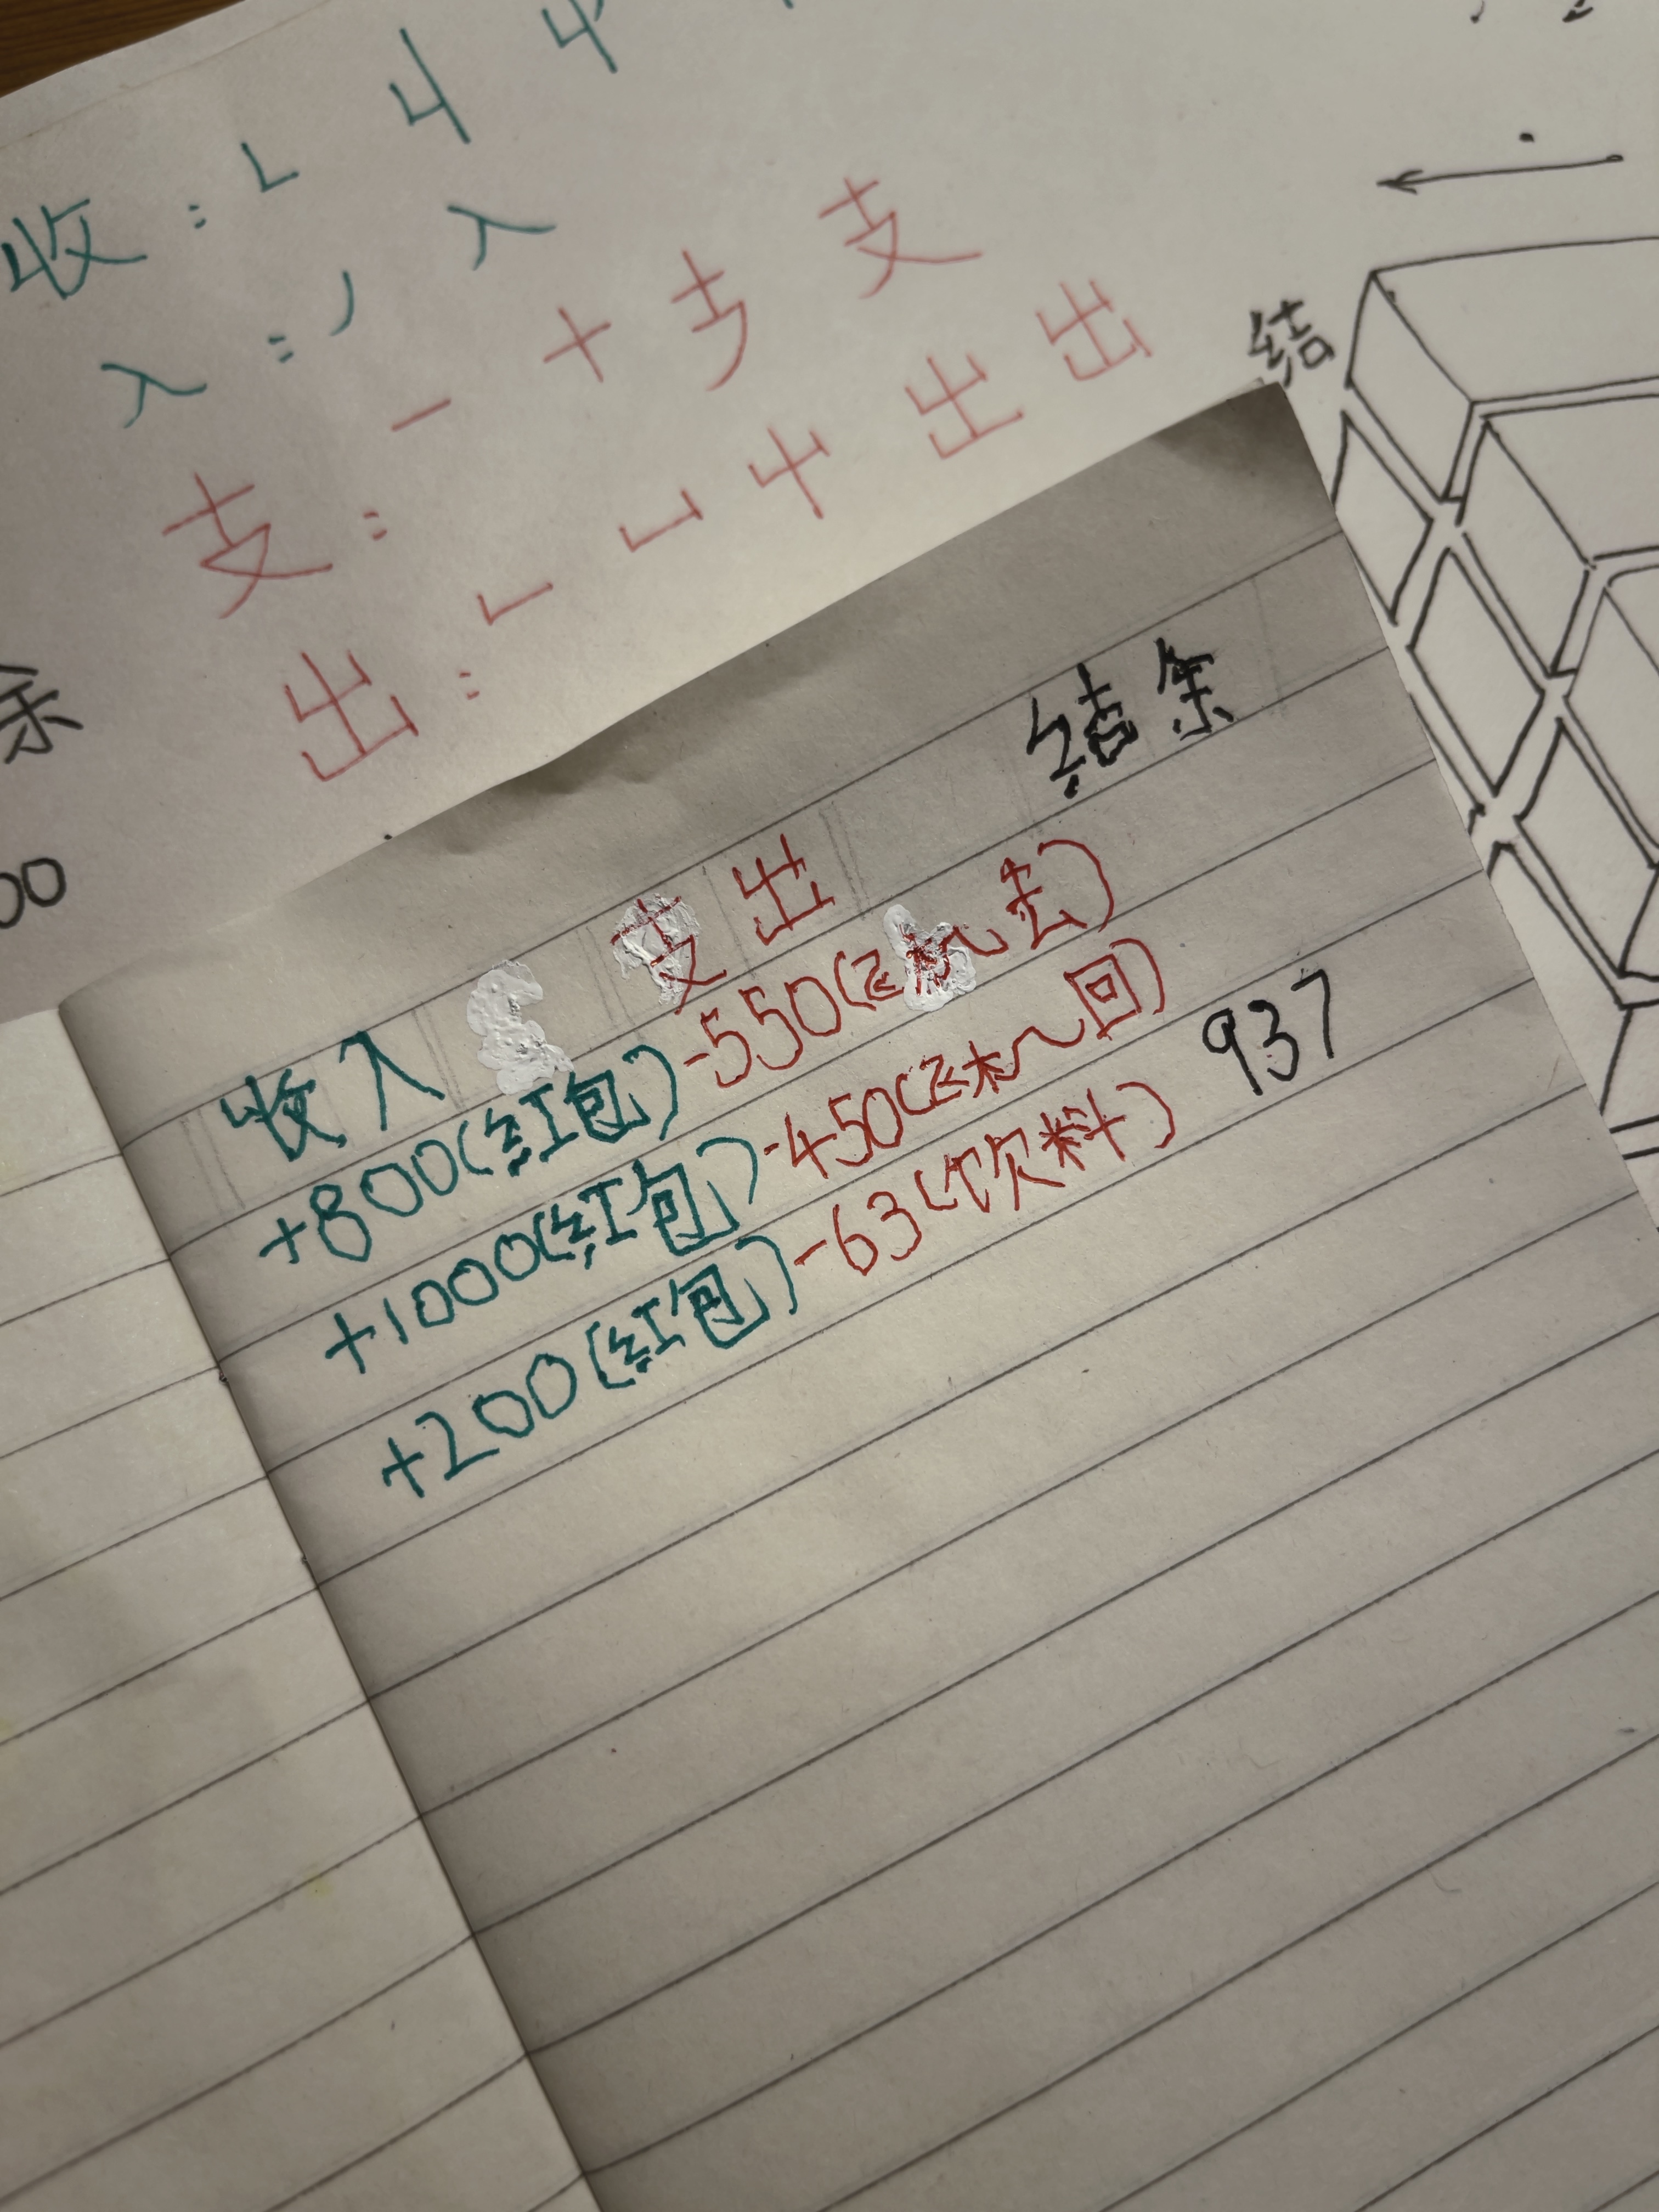 收：㇄ 丩
入：丿 入
支：一 十 支
出：㇄ 凵 屮 出 出
结
余
00
结余
支出
收入
+800(红包) -550(飞机去)
+1000(红包) -450(飞机回)
+200(红包) -63(饮料) 937